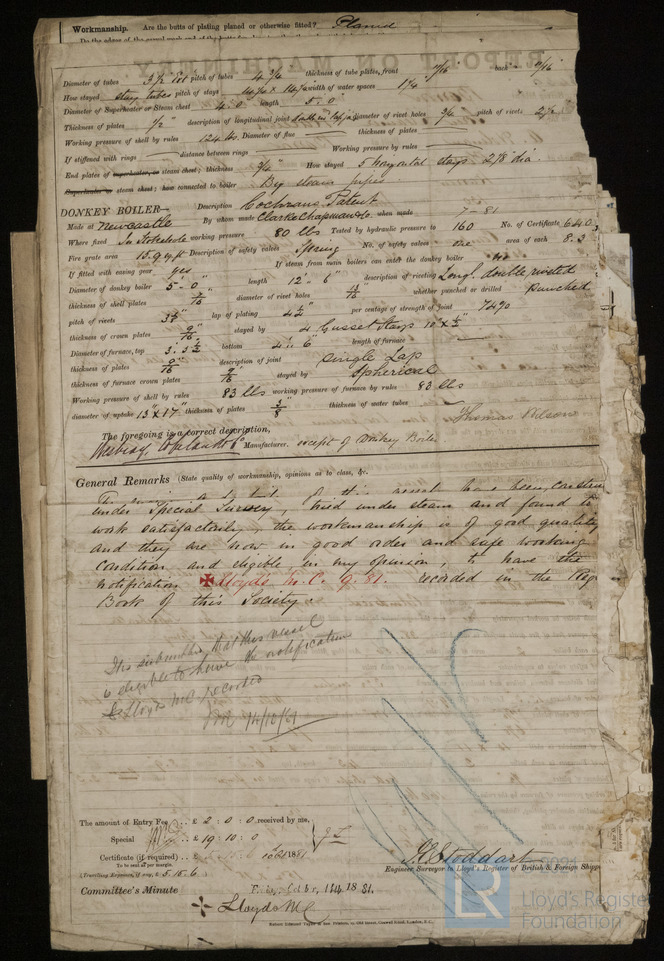 Workmanship. Are the butts of plating planed or otherwise fitted? Planed
REPORT ON MACHINERY
Diameter of tubes 3 1/2" Ext pitch of tubes 4 3/4 thickness of tube plates, front 11/16 back 11/16
How stayed stay tubes pitch of stays width of water spaces 1 1/4
Diameter of Superheater or Steam chest 4.0 length 5.0
Thickness of plates 1/2" description of longitudinal joint diameter of rivet holes 3/4 pitch of rivets 2 1/2
Working pressure of shell by rules 124 lbs Diameter of flue thickness of plates
If stiffened with rings distance between rings Working pressure by rules
End plates of superheater, or steam chest; thickness 3/4" How stayed 5 horizontal stays 2 1/8" dia.
Superheater or steam chest; how connected to boiler By steam pipes
DONKEY BOILER— Description Cochrans Patent
Made at Newcastle By whom made Clarke Chapman & Co. when made 7-81
Where fixed In Stokehole working pressure 80 lbs Tested by hydraulic pressure to 160 No. of Certificate 640
Fire grate area 15.9 sq ft Description of safety valves Spring No. of safety valves one area of each 8.3
If fitted with easing gear yes If steam from main boilers can enter the donkey boiler no
Diameter of donkey boiler 5'-0" length 12' 6" description of riveting Long. double riveted
thickness of shell plates 7/16 diameter of rivet holes 13/16 whether punched or drilled punched
pitch of rivets lap of plating 4 1/2" per centage of strength of joint 74 70
thickness of crown plates 9/16" stayed by 4 Gusset Stays 10" x 1/2"
Diameter of furnace, top 3'.3 1/2 bottom 4' 6" length of furnace
thickness of plates 9/16" description of joint Single Lap
thickness of furnace crown plates 9/16" stayed by Spherical
Working pressure of shell by rules 83 lbs working pressure of furnace by rules 83 lbs
diameter of uptake 13" x 17" thickness of plates 3/8" thickness of water tubes
The foregoing is a correct description,
Manufacturer. except of Donkey Boiler
General Remarks (State quality of workmanship, opinions as to class, &c.
of this vessel have been constru
under Special Survey, tried under steam and found to
work satisfactorily, the workmanship is of good quality
and they are now in good order and safe working
condition and eligible, in my opinion, to have the
notification ✠ Lloyds M.C. 9.81. recorded in the Reg
Book of this Society.
It is submitted that this vessel
is eligible to have the notification
Lloyds MC recorded
14/10/81
The amount of Entry Fee .. £ 2 : 0 : 0 received by me,
Special .. £ 19 : 10 : 0
Certificate (if required) .. 1881
To be sent as per margin.
(Travelling Expenses, if any, £ 5.15.6
J. Stoddart
Engineer Surveyor to Lloyd's Register of British & Foreign Shipp
Committee's Minute Friday, Octbr, 14th 1881.
✠ Lloyds MC
LR
Lloyd's Register
Foundation